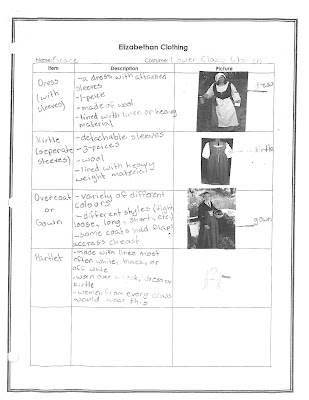 Elizabethan Clothing
Name: Grace Costume: Lower Class Women
Item Description Picture
Dress
(with
sleeves)
-a dress with attached
sleeves
-1-peice
-made of wool
-lined with linen or heavy
material
Dress
Kirtle
(seperate
sleeves)
-detachable sleeves
-3-peices
-wool
-lined with heavy
weight material
kirtle
Overcoat
or
Gown
-variety of different
colors
-different styles (tight,
loose, long, short, etc.)
-some coats had flaps
accrass cheast
gown
Partlet
-made with linen most
often white, black, or
off white
-worn over smock, dress or
kirtle
-women from every class
would wear this